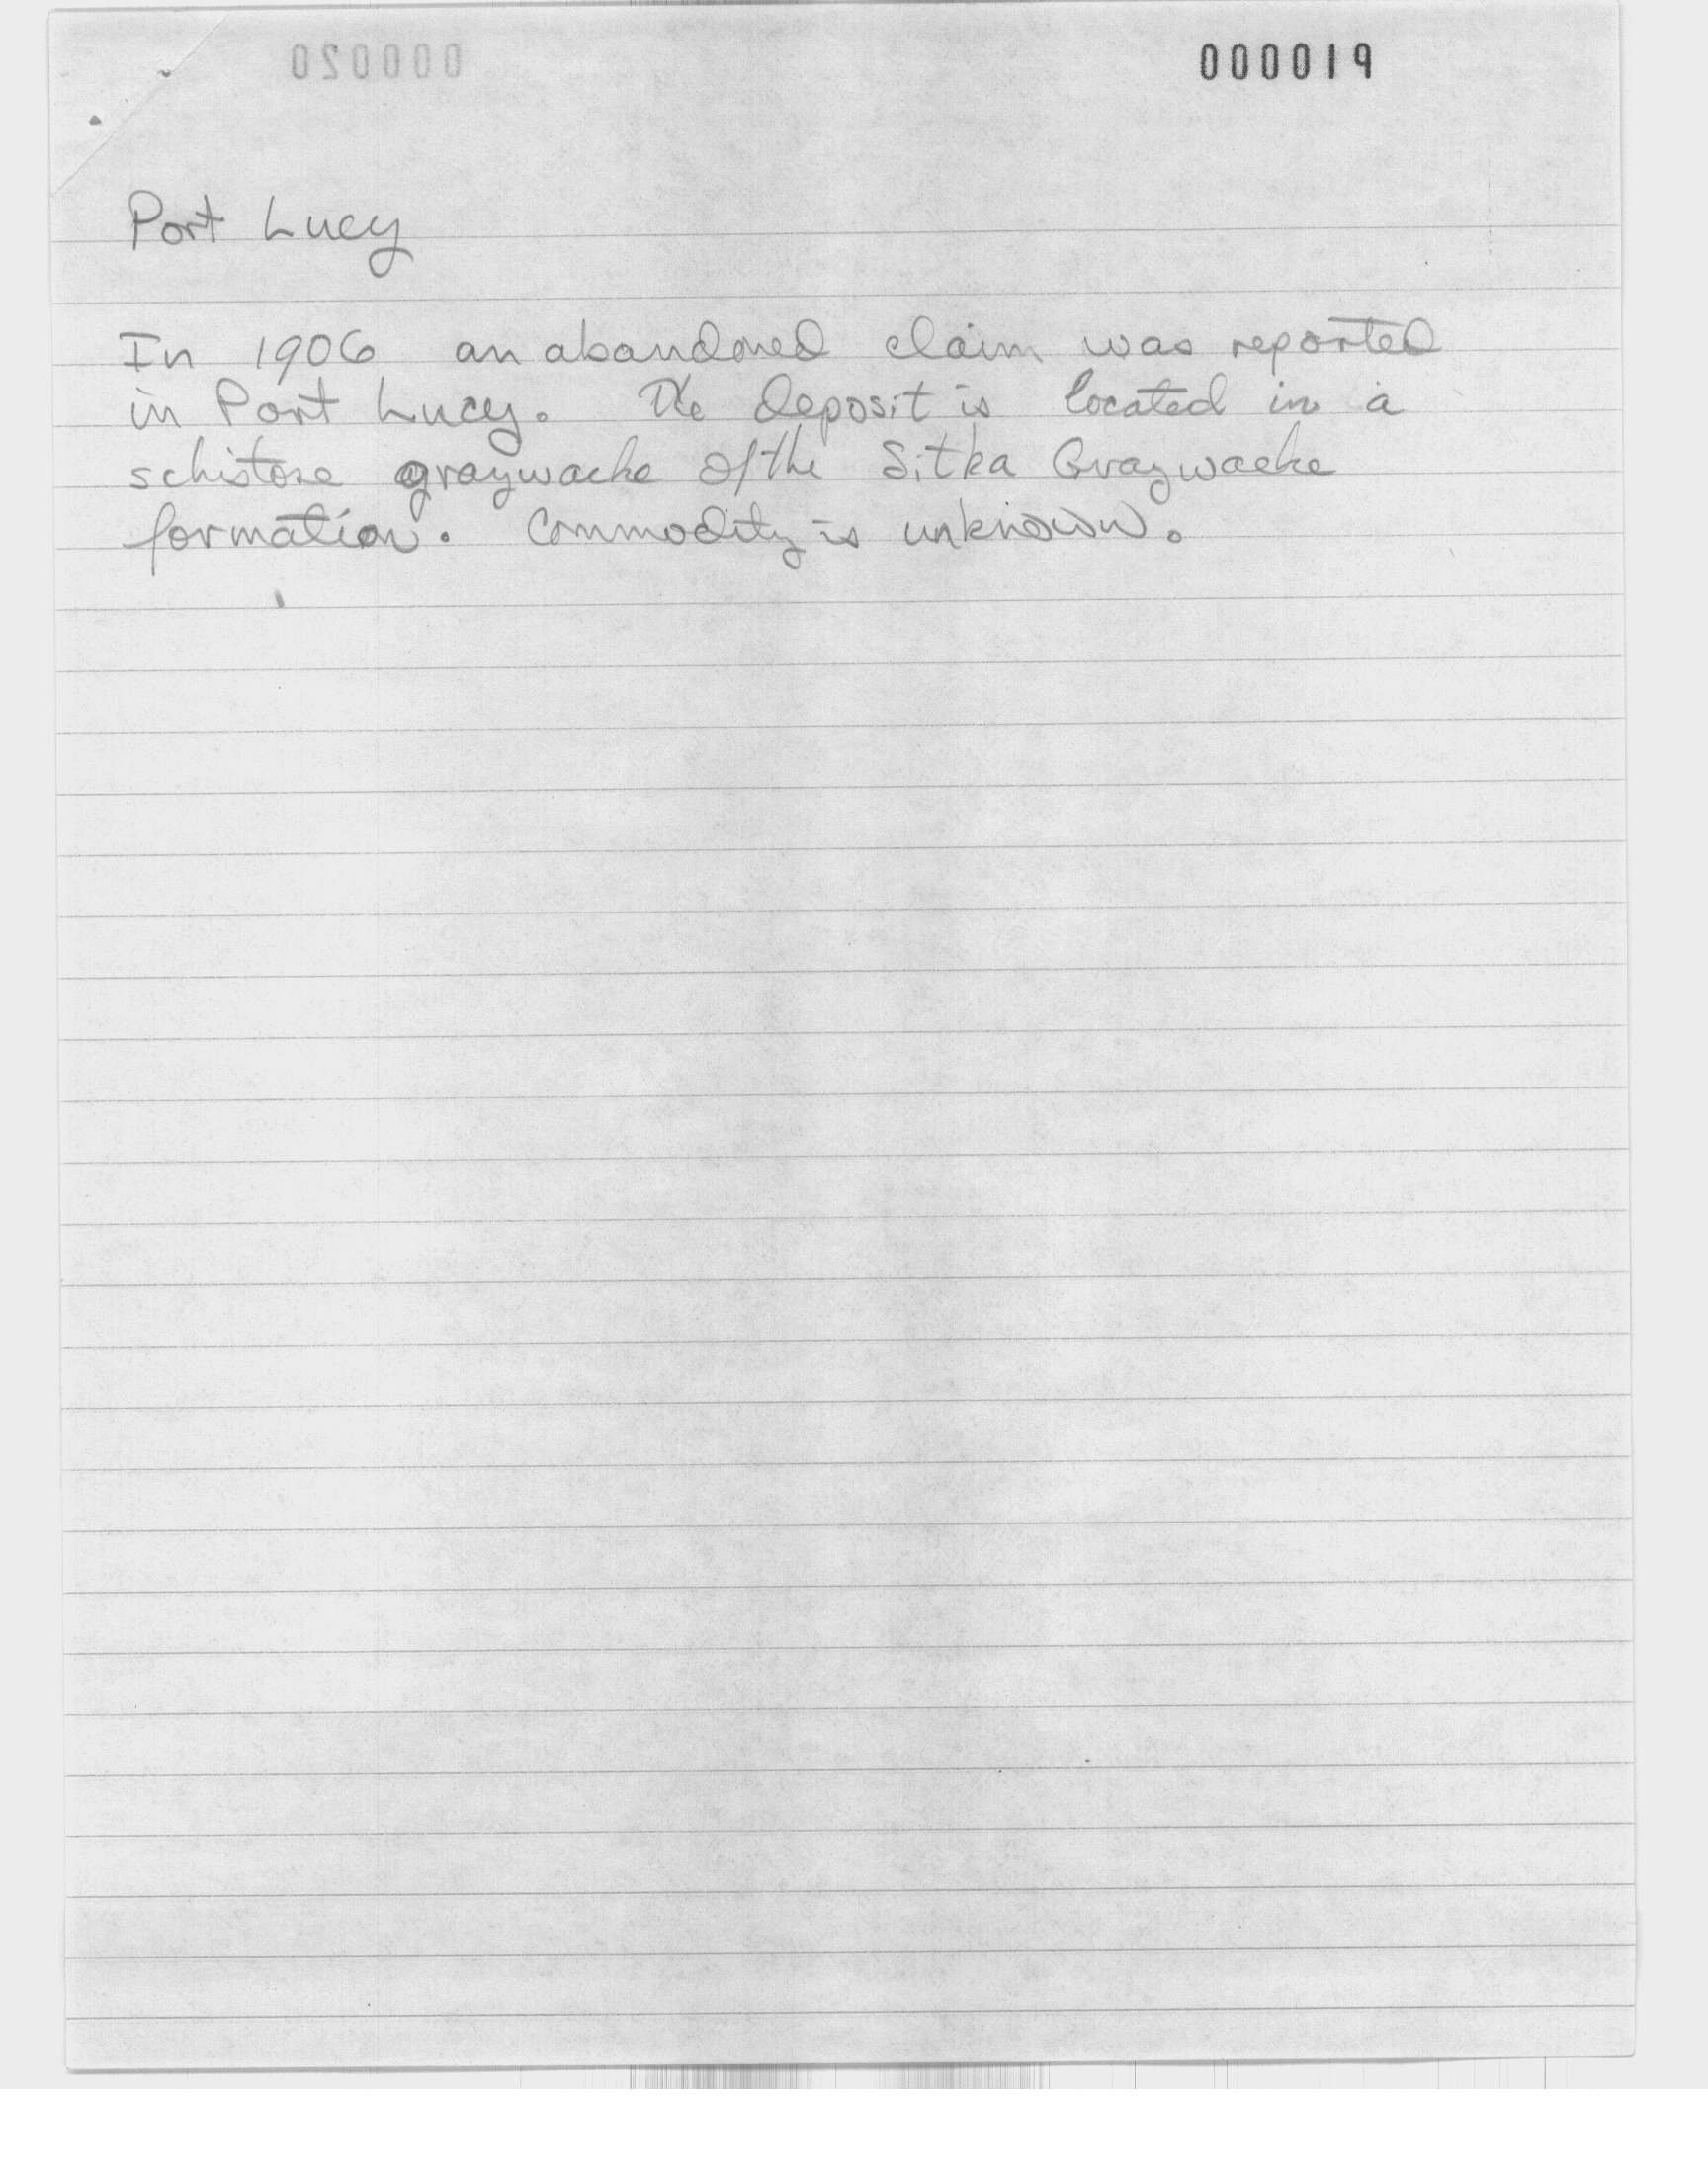 000020
000019
Port Lucy
In 1906 an abandoned claim was reported
in Port Lucy. The deposit is located in a
schistose graywacke of the Sitka Graywacke
formation. Commodity is unknown.